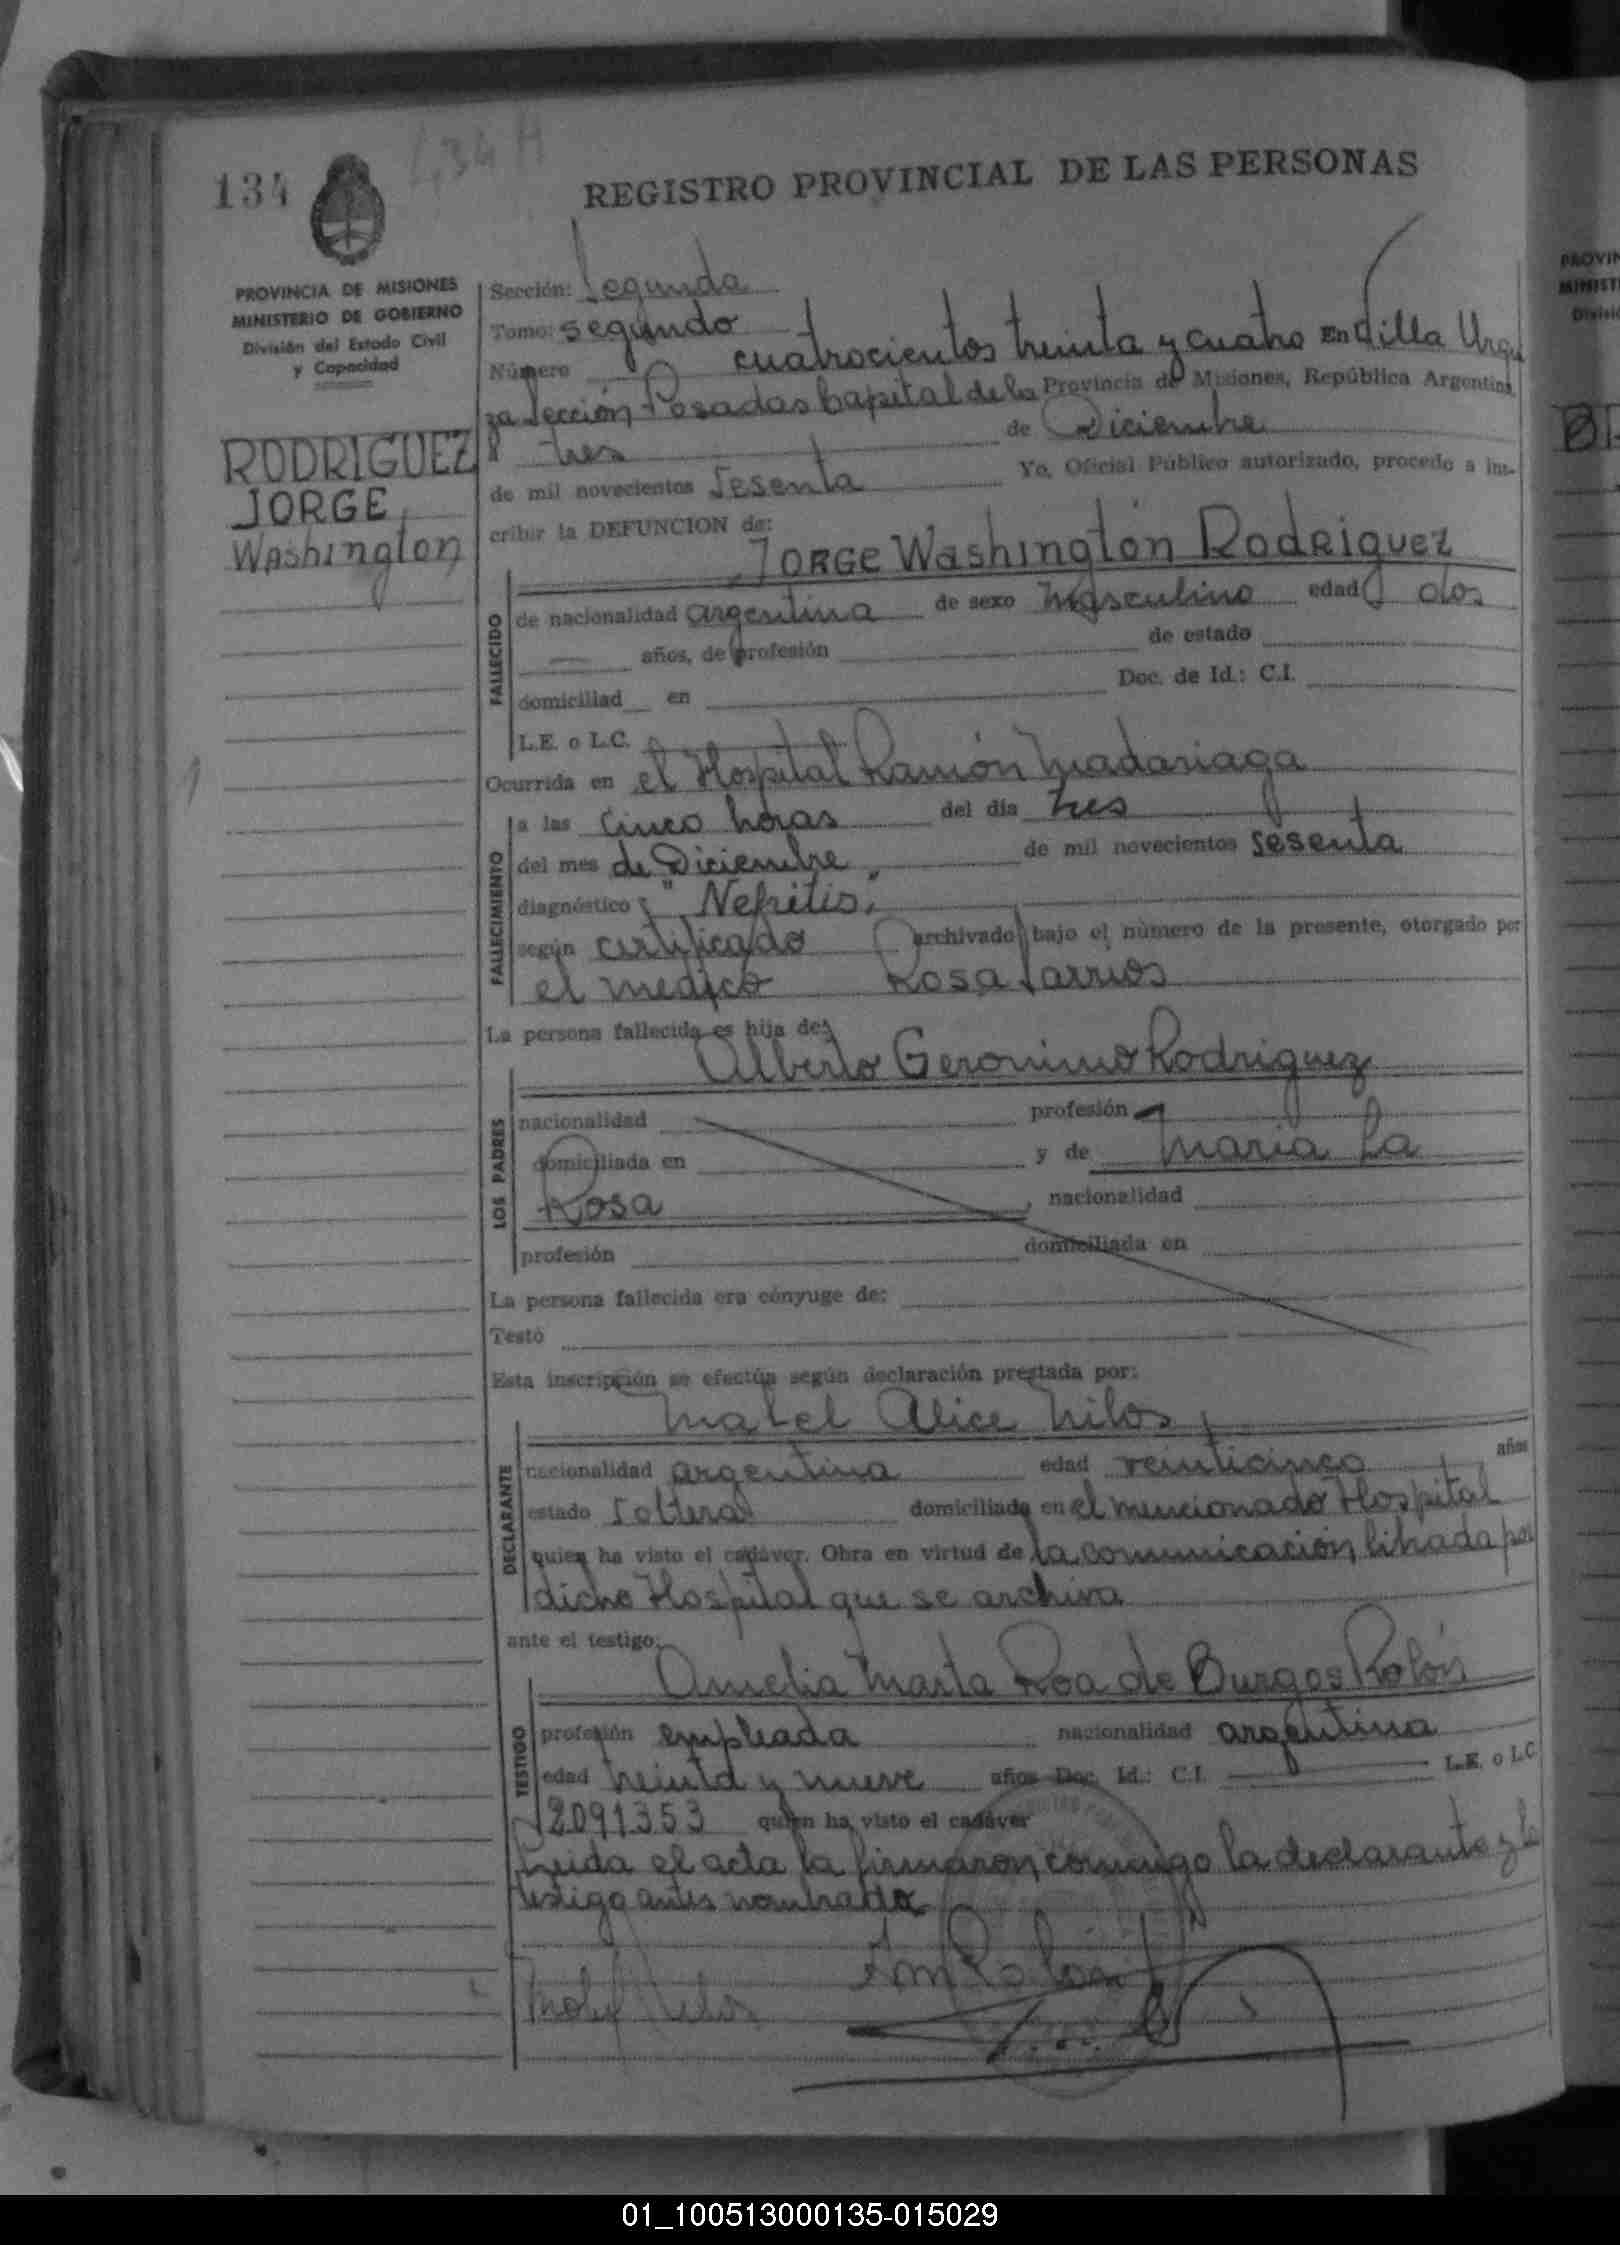 134
434 H
REGISTRO PROVINCIAL DE LAS PERSONAS
PROVINCIA DE MISIONES
MINISTERIO DE GOBIERNO
División del Estado Civil
y Capacidad
RODRIGUEZ
JORGE
Washington
Sección: Segunda
Tomo: segundo
Número cuatrocientos treinta y cuatro En Villa Urqui
za Sección Posadas Capital de la Provincia de Misiones, República Argentina,
a tres de Diciembre
de mil novecientos sesenta Yo, Oficial Público autorizado, procedo a ins-
cribir la DEFUNCION de:
JORGE Washington Rodriguez
FALLECIDO
de nacionalidad argentina de sexo masculino edad dos
años, de profesión de estado
domiciliad en Doc. de Id.: C.I.
L.E. o L.C.
Ocurrida en el Hospital Ramón Madariaga
FALLECIMIENTO
a las cinco horas del día tres
del mes de Diciembre de mil novecientos sesenta
diagnóstico "Nefritis"
según certificado archivado bajo el número de la presente, otorgado por
el medico Rosa
La persona fallecida es hija de:
Alberto Geronimo Rodriguez
LOS PADRES
nacionalidad profesión
domiciliada en y de Maria La
Rosa, nacionalidad
profesión domiciliada en
La persona fallecida era cónyuge de:
Testó
Esta inscripción se efectúa según declaración prestada por:
Mabel Alice Milos
DECLARANTE
nacionalidad argentina edad veinticinco años
estado soltera domiciliada en el mencionado Hospital
quien ha visto el cadáver. Obra en virtud de la comunicación librada por
dicho Hospital que se archiva
ante el testigo:
Amelia Marta Roa de Burgos Rolón
TESTIGO
profesión empleada nacionalidad argentina
edad treinta y nueve años Doc. Id.: C.I. L.E. o L.C.
2091353 quien ha visto el cadáver
Leida el acta la firmaron conmigo la declarante y la
testigo antes nombrada
PROVIN
MINIST
Divisió
01_100513000135-015029